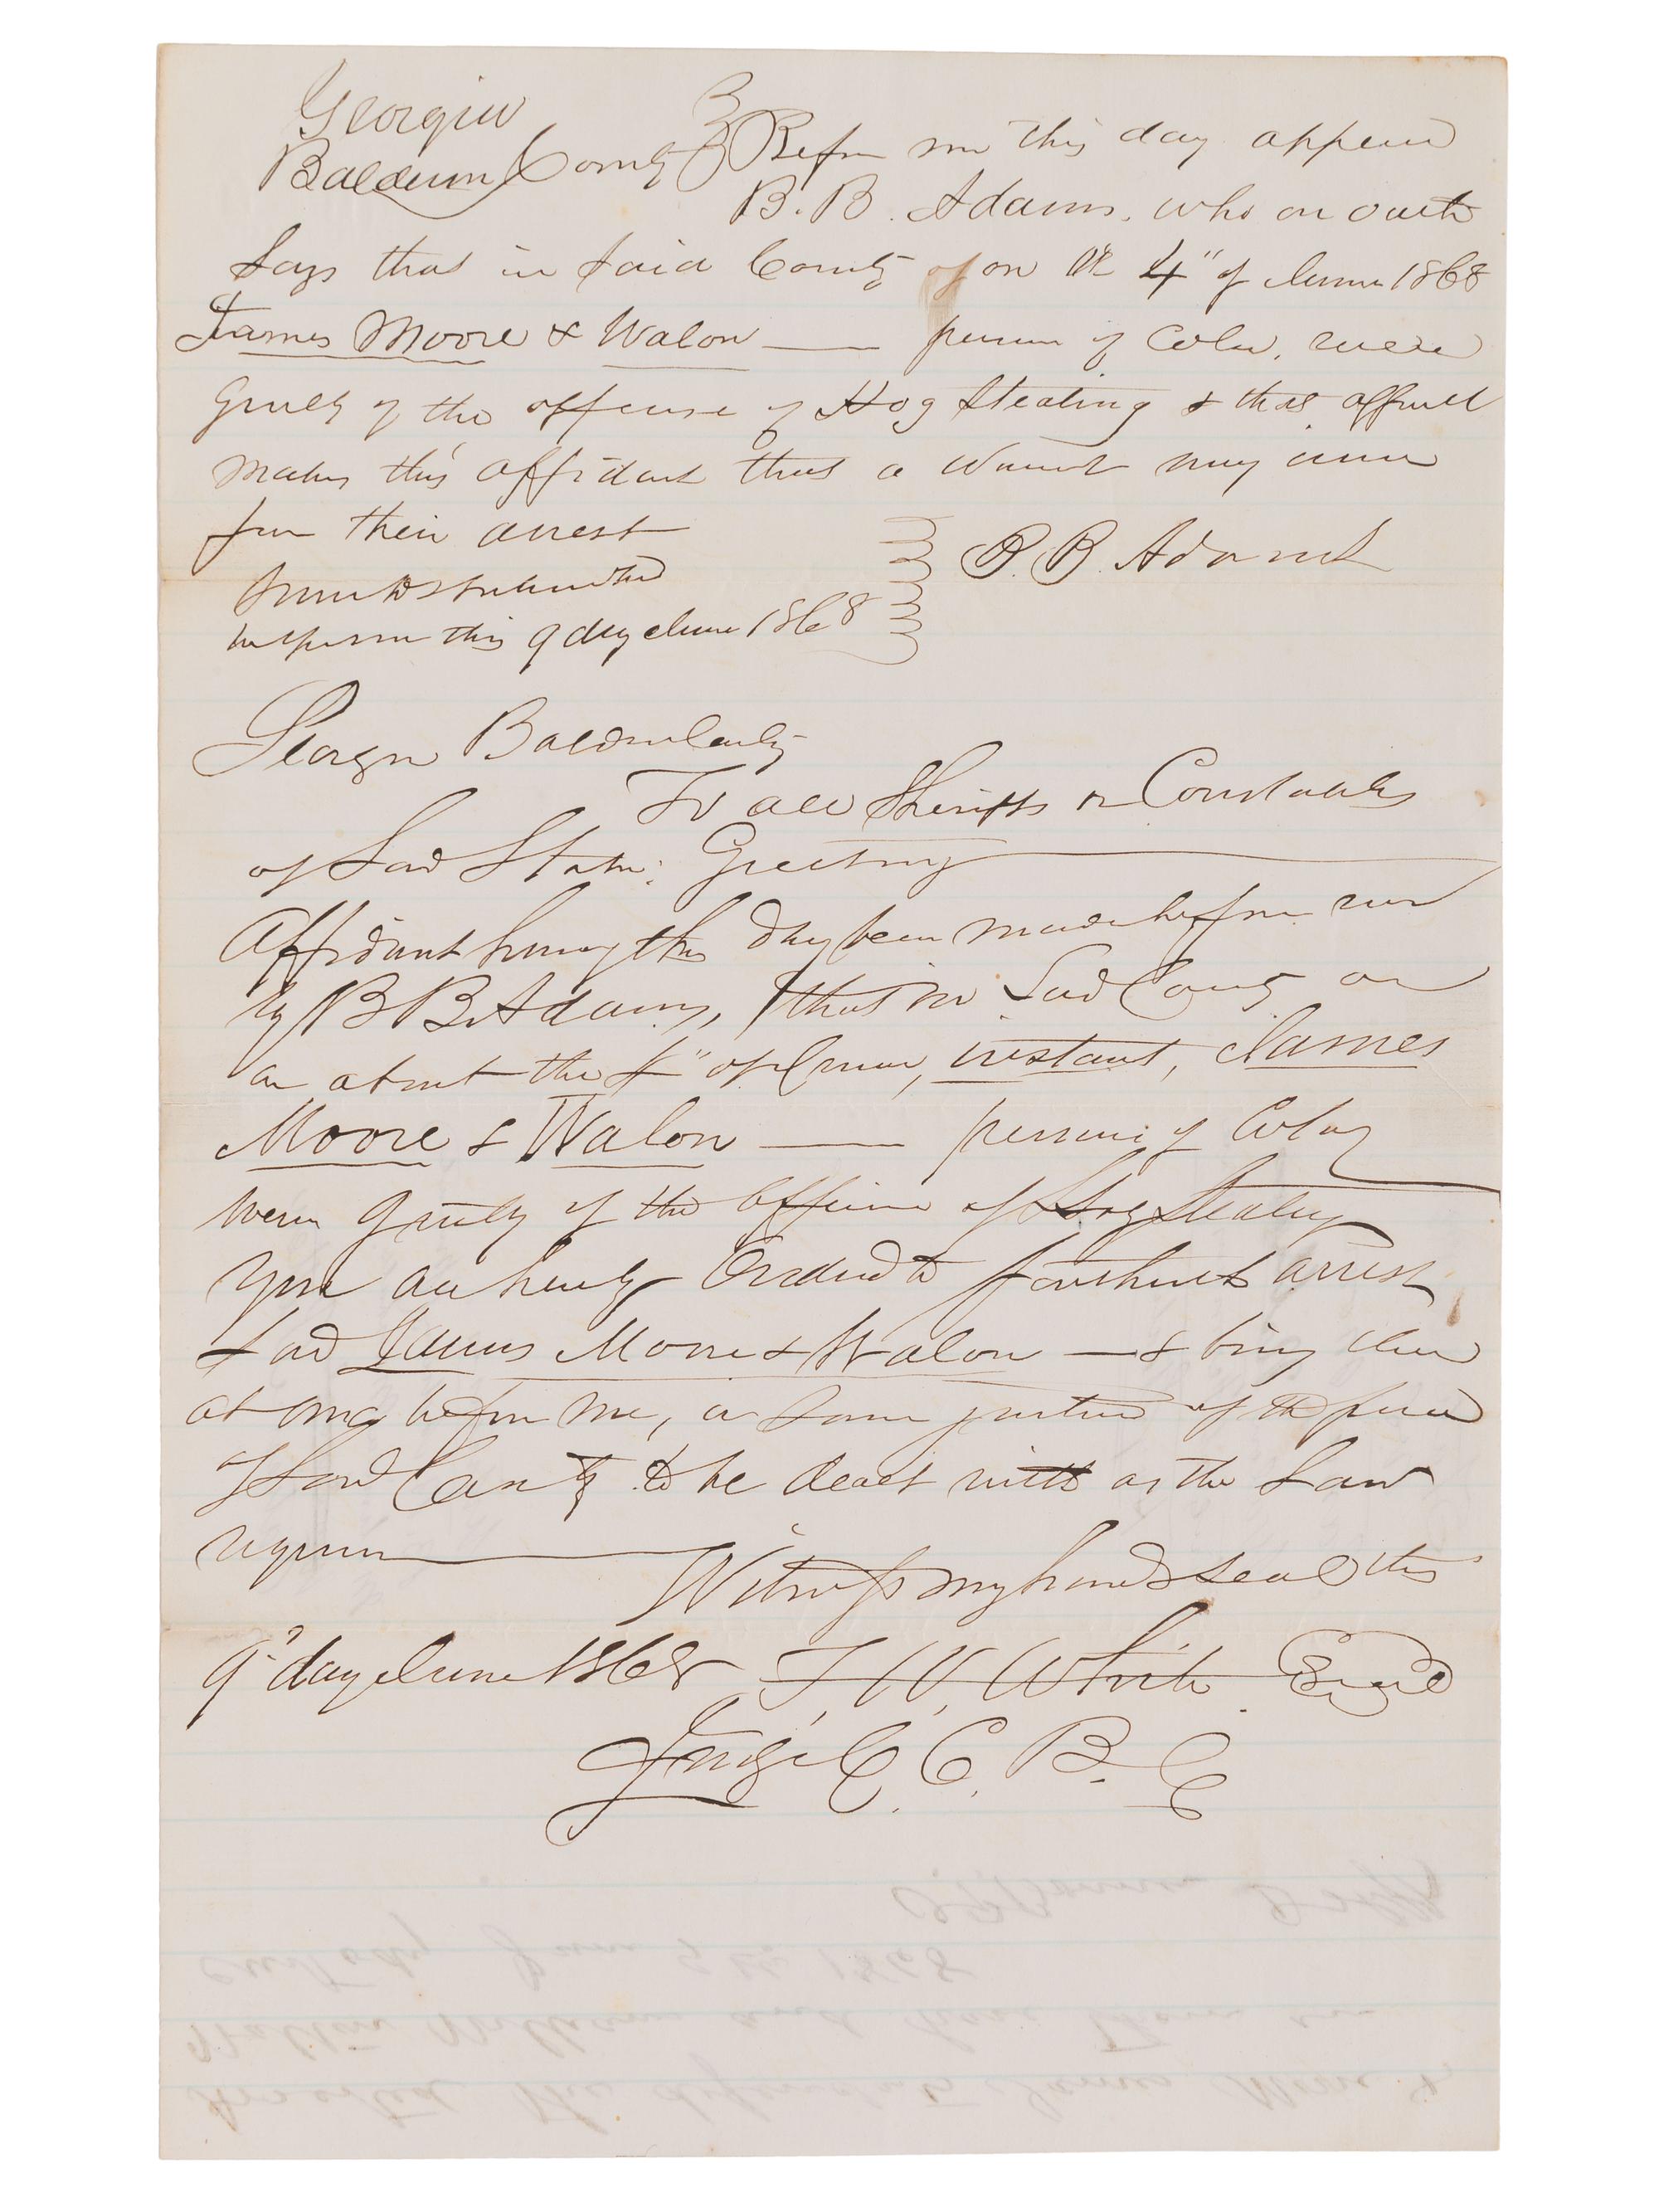 Georgia
Baldwin County } Before me this day appeared
B. B. Adams, who on oath
Says that in said County of on the 4" of June 1868
James Moore & Walon — person of Color, were
Guilty of the offense of Hog Stealing & that affiant
makes this affidavit that a warrant may issue
for their arrest
Sworn to & subscribed
before me this 9 day June 1868
B. B. Adams
Georgia Baldwin County
To all Sheriffs or Constables
of Said State: Greeting
Affidavit having this day been made before me
by B B Adams, that in Said County on
or about the 4" of June, instant, James
Moore & Walon — persons of Color
were guilty of the offense of Hog Stealing
You are hereby Ordered to forthwith arrest
said James Moore & Walon — & bring them
at once before me, or some justice of the peace
of Said County to be dealt with as the Law
requires
Witness my hand & seal this
9" day June 1868 T. W. White Seal
Judge C. C. B. C
Sheriff
custody June 9th 1868
Walton and have them in
Arrested the defendants James Moore &